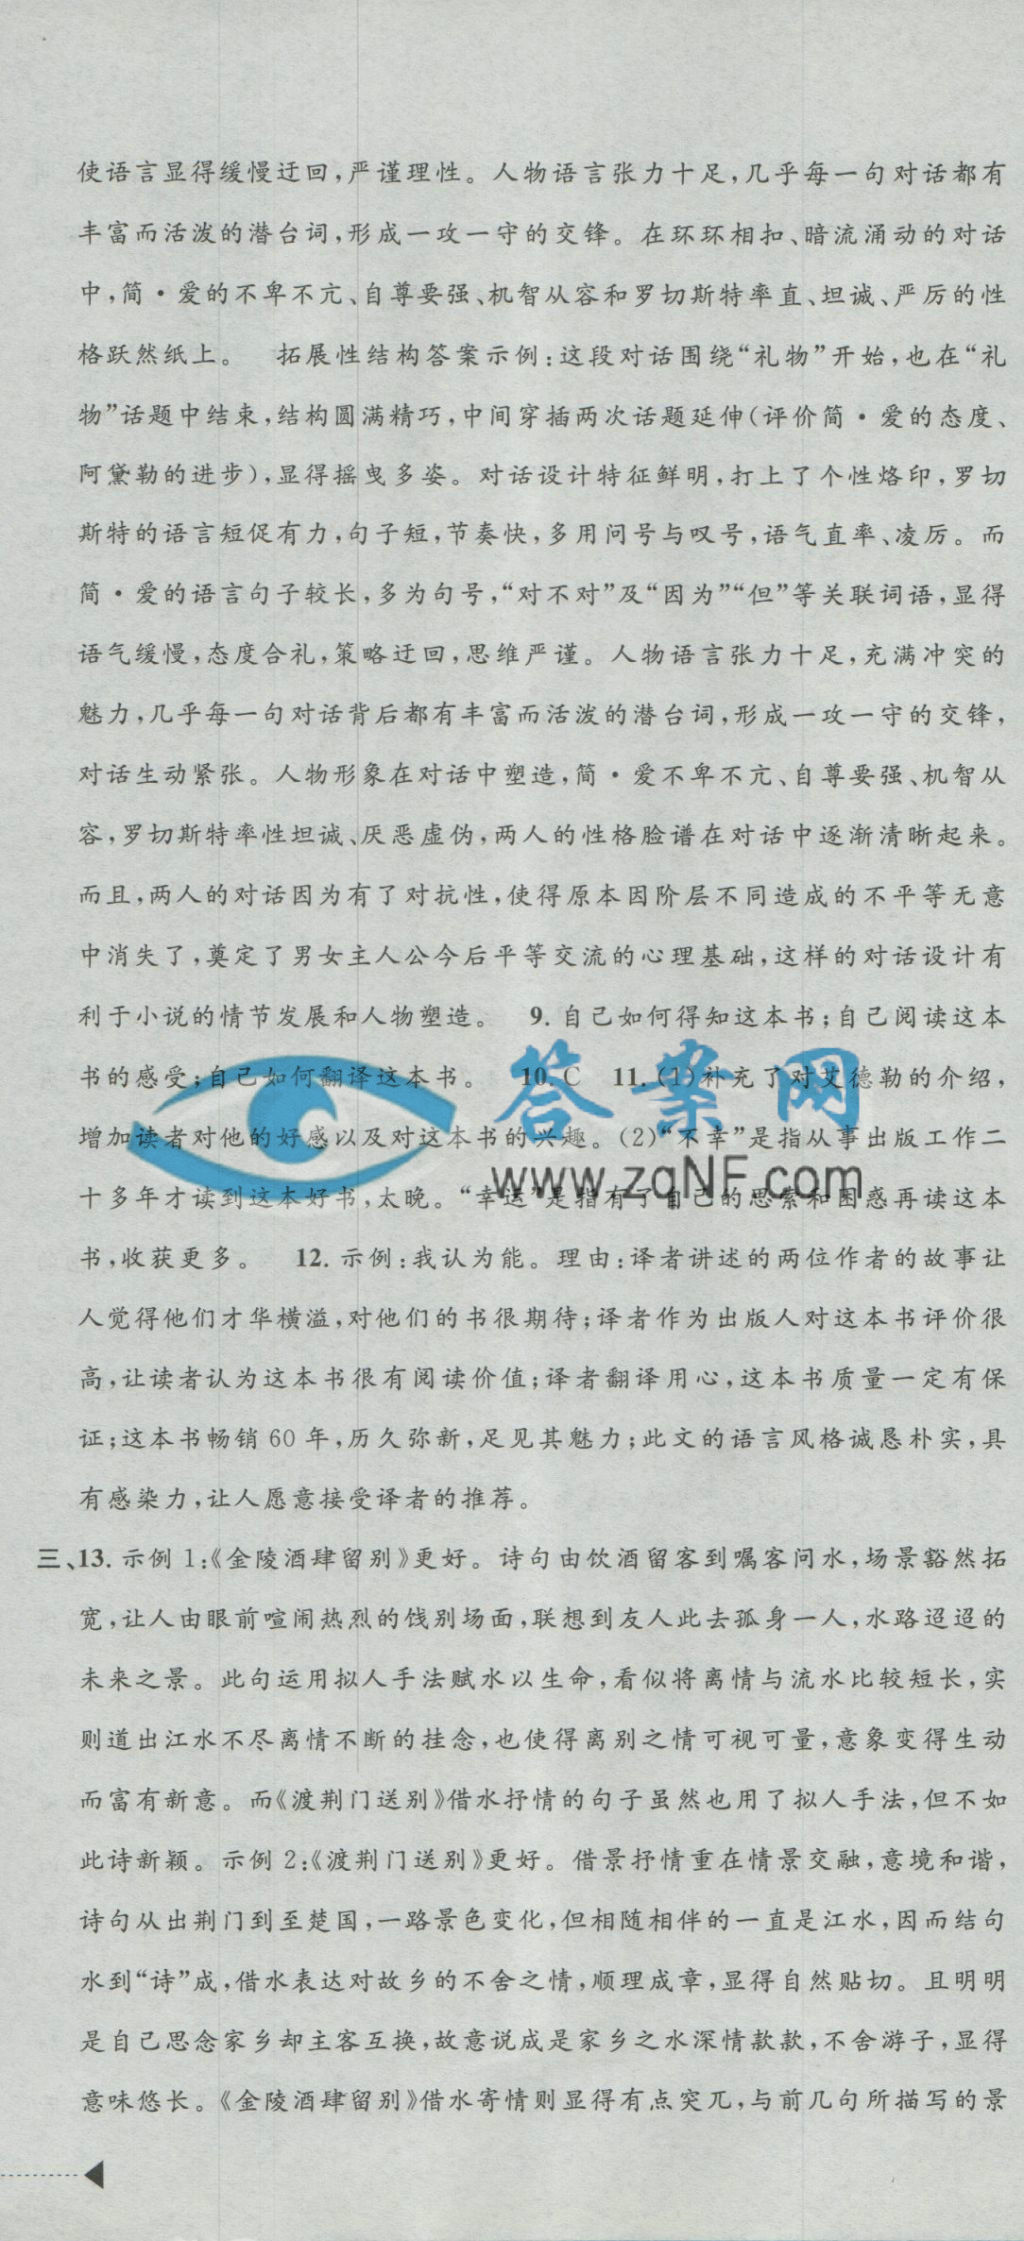 使语言显得缓慢迂回,严谨理性。人物语言张力十足,几乎每一句对话都有
丰富而活泼的潜台词,形成一攻一守的交锋。在环环相扣、暗流涌动的对话
中,简·爱的不卑不亢、自尊要强、机智从容和罗切斯特率直、坦诚、严厉的性
格跃然纸上。 拓展性结构答案示例:这段对话围绕“礼物”开始,也在“礼
物”话题中结束,结构圆满精巧,中间穿插两次话题延伸(评价简·爱的态度、
阿黛勒的进步),显得摇曳多姿。对话设计特征鲜明,打上了个性烙印,罗切
斯特的语言短促有力,句子短,节奏快,多用问号与叹号,语气直率、凌厉。而
简·爱的语言句子较长,多为句号,“对不对”及“因为”“但”等关联词语,显得
语气缓慢,态度合礼,策略迂回,思维严谨。人物语言张力十足,充满冲突的
魅力,几乎每一句对话背后都有丰富而活泼的潜台词,形成一攻一守的交锋,
对话生动紧张。人物形象在对话中塑造,简·爱不卑不亢、自尊要强、机智从
容,罗切斯特率性坦诚、厌恶虚伪,两人的性格脸谱在对话中逐渐清晰起来。
而且,两人的对话因为有了对抗性,使得原本因阶层不同造成的不平等无意
中消失了,奠定了男女主人公今后平等交流的心理基础,这样的对话设计有
利于小说的情节发展和人物塑造。 9. 自己如何得知这本书;自己阅读这本
书的感受;自己如何翻译这本书。 10. C 11. (1)补充了对艾德勒的介绍,
增加读者对他的好感以及对这本书的兴趣。(2)“不幸”是指从事出版工作二
十多年才读到这本好书,太晚。“幸运”是指有了自己的思索和困惑再读这本
书,收获更多。 12. 示例:我认为能。理由:译者讲述的两位作者的故事让
人觉得他们才华横溢,对他们的书很期待;译者作为出版人对这本书评价很
高,让读者认为这本书很有阅读价值;译者翻译用心,这本书质量一定有保
证;这本书畅销 60 年,历久弥新,足见其魅力;此文的语言风格诚恳朴实,具
有感染力,让人愿意接受译者的推荐。
三、13. 示例 1:《金陵酒肆留别》更好。诗句由饮酒留客到嘱客问水,场景豁然拓
宽,让人由眼前喧闹热烈的饯别场面,联想到友人此去孤身一人,水路迢迢的
未来之景。此句运用拟人手法赋水以生命,看似将离情与流水比较短长,实
则道出江水不尽离情不断的挂念,也使得离别之情可视可量,意象变得生动
而富有新意。而《渡荆门送别》借水抒情的句子虽然也用了拟人手法,但不如
此诗新颖。示例 2:《渡荆门送别》更好。借景抒情重在情景交融,意境和谐,
诗句从出荆门到至楚国,一路景色变化,但相随相伴的一直是江水,因而结句
水到“诗”成,借水表达对故乡的不舍之情,顺理成章,显得自然贴切。且明明
是自己思念家乡却主客互换,故意说成是家乡之水深情款款,不舍游子,显得
意味悠长。《金陵酒肆留别》借水寄情则显得有点突兀,与前几句所描写的景
答案网
www.zqNF.com